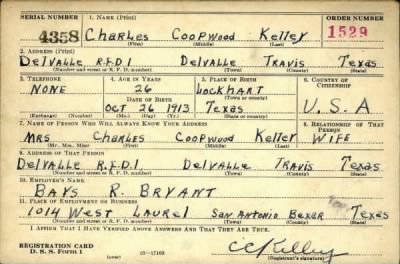 SERIAL NUMBER 1. NAME (Print) ORDER NUMBER
4358 CHARLES COOPWOOD KELLEY 1529
(First) (Middle) (Last)
2. ADDRESS (Print)
DELVALLE R.F.D.1 DELVALLE TRAVIS TEXAS
(Number and street or R. F. D. number) (Town) (County) (State)
3. TELEPHONE 4. AGE IN YEARS 5. PLACE OF BIRTH 6. COUNTRY OF CITIZENSHIP
NONE 26 LOCKHART
DATE OF BIRTH (Town or county)
OCT 26 1913 TEXAS U.S.A
(Exchange) (Number) (Mo.) (Day) (Yr.) (State or country)
7. NAME OF PERSON WHO WILL ALWAYS KNOW YOUR ADDRESS 8. RELATIONSHIP OF THAT PERSON
MRS CHARLES COOPWOOD KELLEY WIFE
(Mr., Mrs., Miss) (First) (Middle) (Last)
9. ADDRESS OF THAT PERSON
DELVALLE R.F.D.1 DELVALLE TRAVIS TEXAS
(Number and street or R. F. D. number) (Town) (County) (State)
10. EMPLOYER'S NAME
BAYS R. BRYANT
11. PLACE OF EMPLOYMENT OR BUSINESS
1014 WEST LAUREL SAN ANTONIO BEXAR TEXAS
(Number and street or R. F. D. number) (Town) (County) (State)
I AFFIRM THAT I HAVE VERIFIED ABOVE ANSWERS AND THAT THEY ARE TRUE.
REGISTRATION CARD
D. S. S. FORM 1 (over) 16—17105 CCKelley
(Registrant's signature)